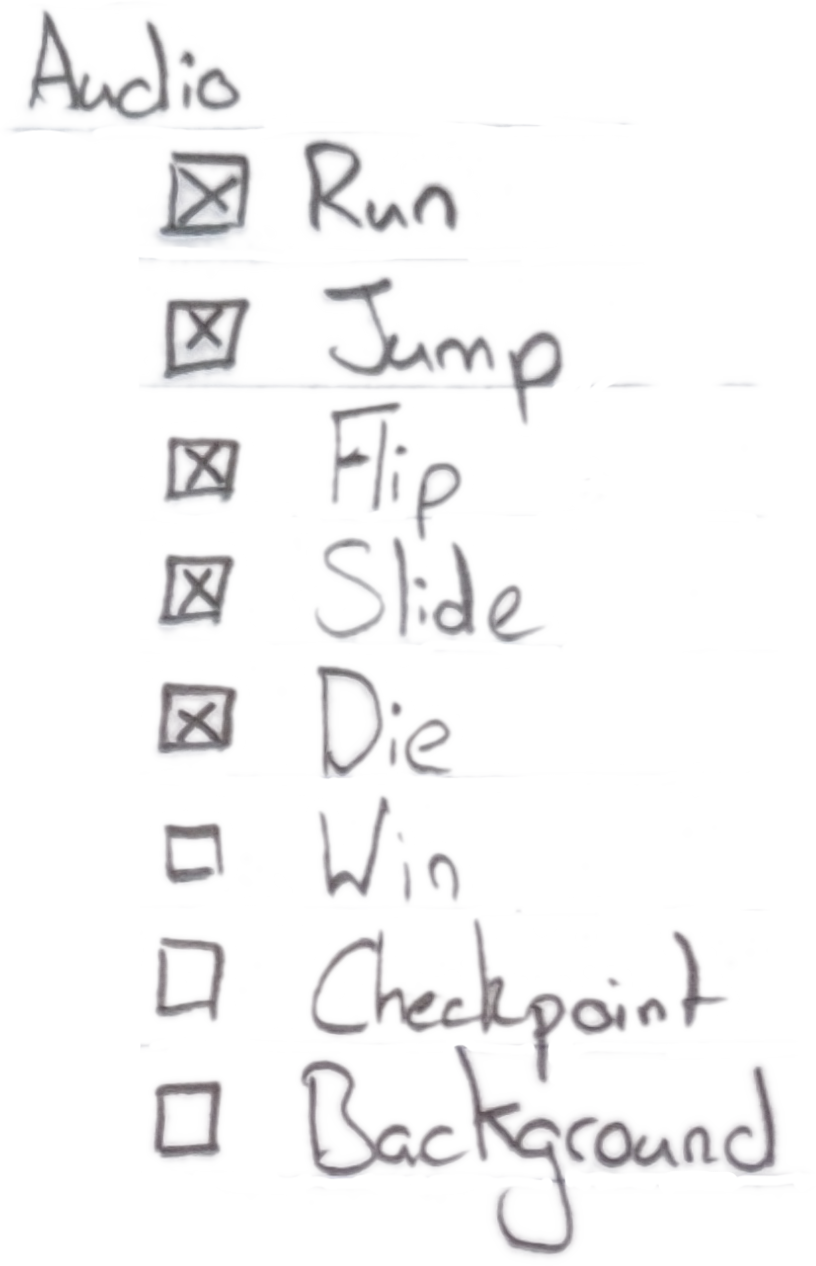 Audio
☒ Run
☒ Jump
☒ Flip
☒ Slide
☒ Die
☐ Win
☐ Checkpoint
☐ Background